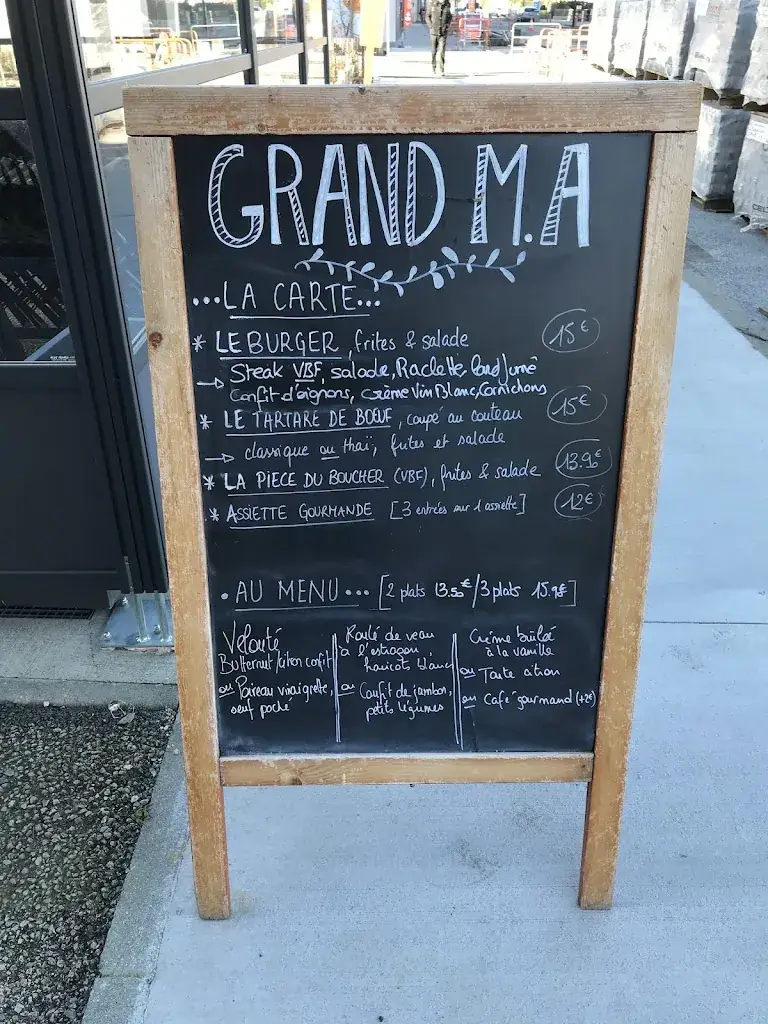 GRAND M.A
...LA CARTE...
* LE BURGER, frites & salade 15€
→ Steak VBF, salade, Raclette, lard fumé
Confit d'oignons, crème Vin Blanc, Cornichons
* LE TARTARE DE BŒUF, coupé au couteau 15€
→ classique ou thaï, frites et salade
* LA PIECE DU BOUCHER (VBF), frites & salade 13.90€
* ASSIETTE GOURMANDE [3 entrées sur 1 assiette] 12€
• AU MENU... [2 plats 13.50€/3 plats 15.90€]
Velouté
Butternut/citron confit
ou Poireau vinaigrette,
oeuf poché
Roulé de veau
à l'estragon,
haricots blancs
ou Confit de jambon,
petits légumes
Crème brûlée
à la vanille
ou Tarte citron
ou Café gourmand (+2€)